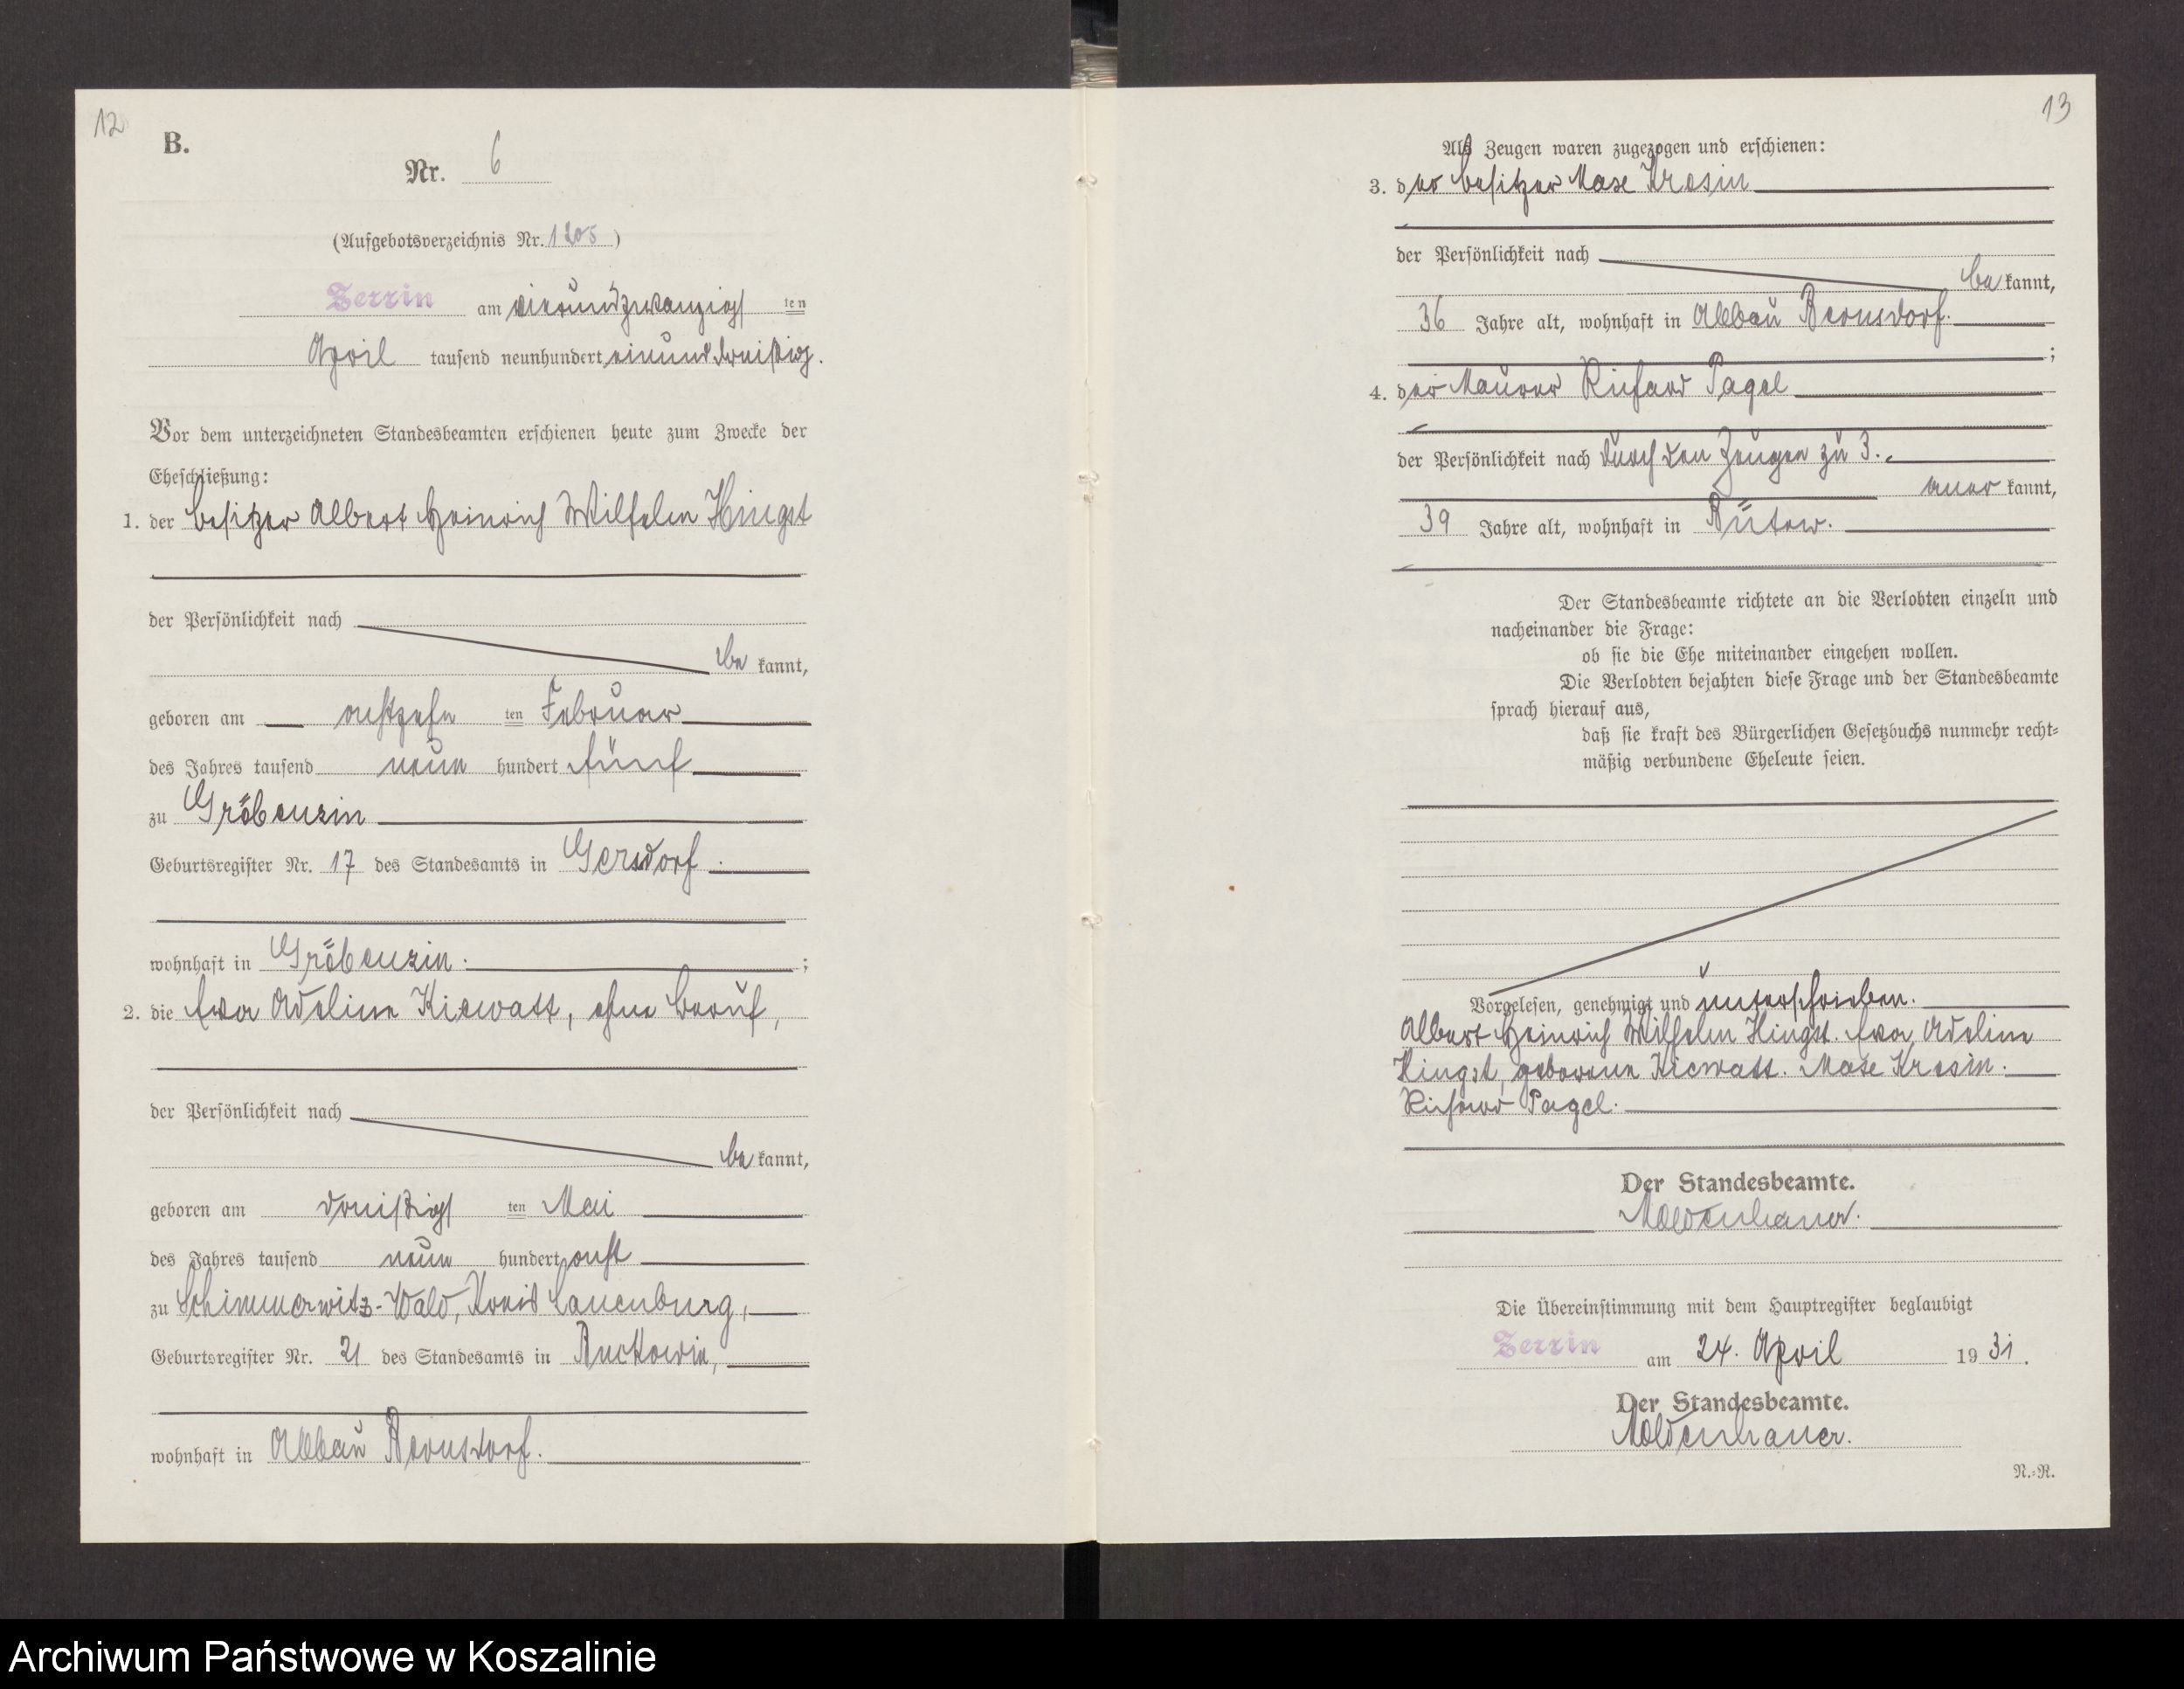 12
B.
Nr. 6
(Aufgebotsverzeichnis Nr. 1205)
Zerrin am vierundzwanzigsten
April tausend neunhundert einunddreißig.
Vor dem unterzeichneten Standesbeamten erschienen heute zum Zwecke der
Eheschließung:
1. der Besitzer Albert Heinrich Wilhelm Hingst
der Persönlichkeit nach
bekannt,
geboren am achtzehnten Februar
des Jahres tausend neunhundert fünf
zu Gröbenzin
Geburtsregister Nr. 17 des Standesamts in Gersdorf.
wohnhaft in Gröbenzin.;
2. die Eva Adeline Kiewatt, ohne Beruf,
der Persönlichkeit nach
bekannt,
geboren am dreißigsten Mai
des Jahres tausend neunhundert acht
zu Schimmerwitz-Wald, Kreis Lauenburg,
Geburtsregister Nr. 21 des Standesamts in Buckowin,
wohnhaft in Abbau Bernsdorf.
13
Als Zeugen waren zugezogen und erschienen:
3. der Besitzer Kresin
der Persönlichkeit nach
bekannt,
36 Jahre alt, wohnhaft in Abbau Bernsdorf.
;
4. der Maurer Richard Pagel
der Persönlichkeit nach durch den Zeugen zu 3.
anerkannt,
39 Jahre alt, wohnhaft in Bütow.
Der Standesbeamte richtete an die Verlobten einzeln und
nacheinander die Frage:
ob sie die Ehe miteinander eingehen wollen.
Die Verlobten bejahten diese Frage und der Standesbeamte
sprach hierauf aus,
daß sie kraft des Bürgerlichen Gesetzbuchs nunmehr recht-
mäßig verbundene Eheleute seien.
Vorgelesen, genehmigt und unterschrieben.
Albert Heinrich Wilhelm Hingst. Eva Adeline
Hingst, geborene Kiewatt. Kresin.
Richard Pagel.
Der Standesbeamte.
Moldenhauer.
Die Übereinstimmung mit dem Hauptregister beglaubigt
Zerrin am 24. April 1931.
Der Standesbeamte.
Moldenhauer.
N.-R.
Archiwum Państwowe w Koszalinie